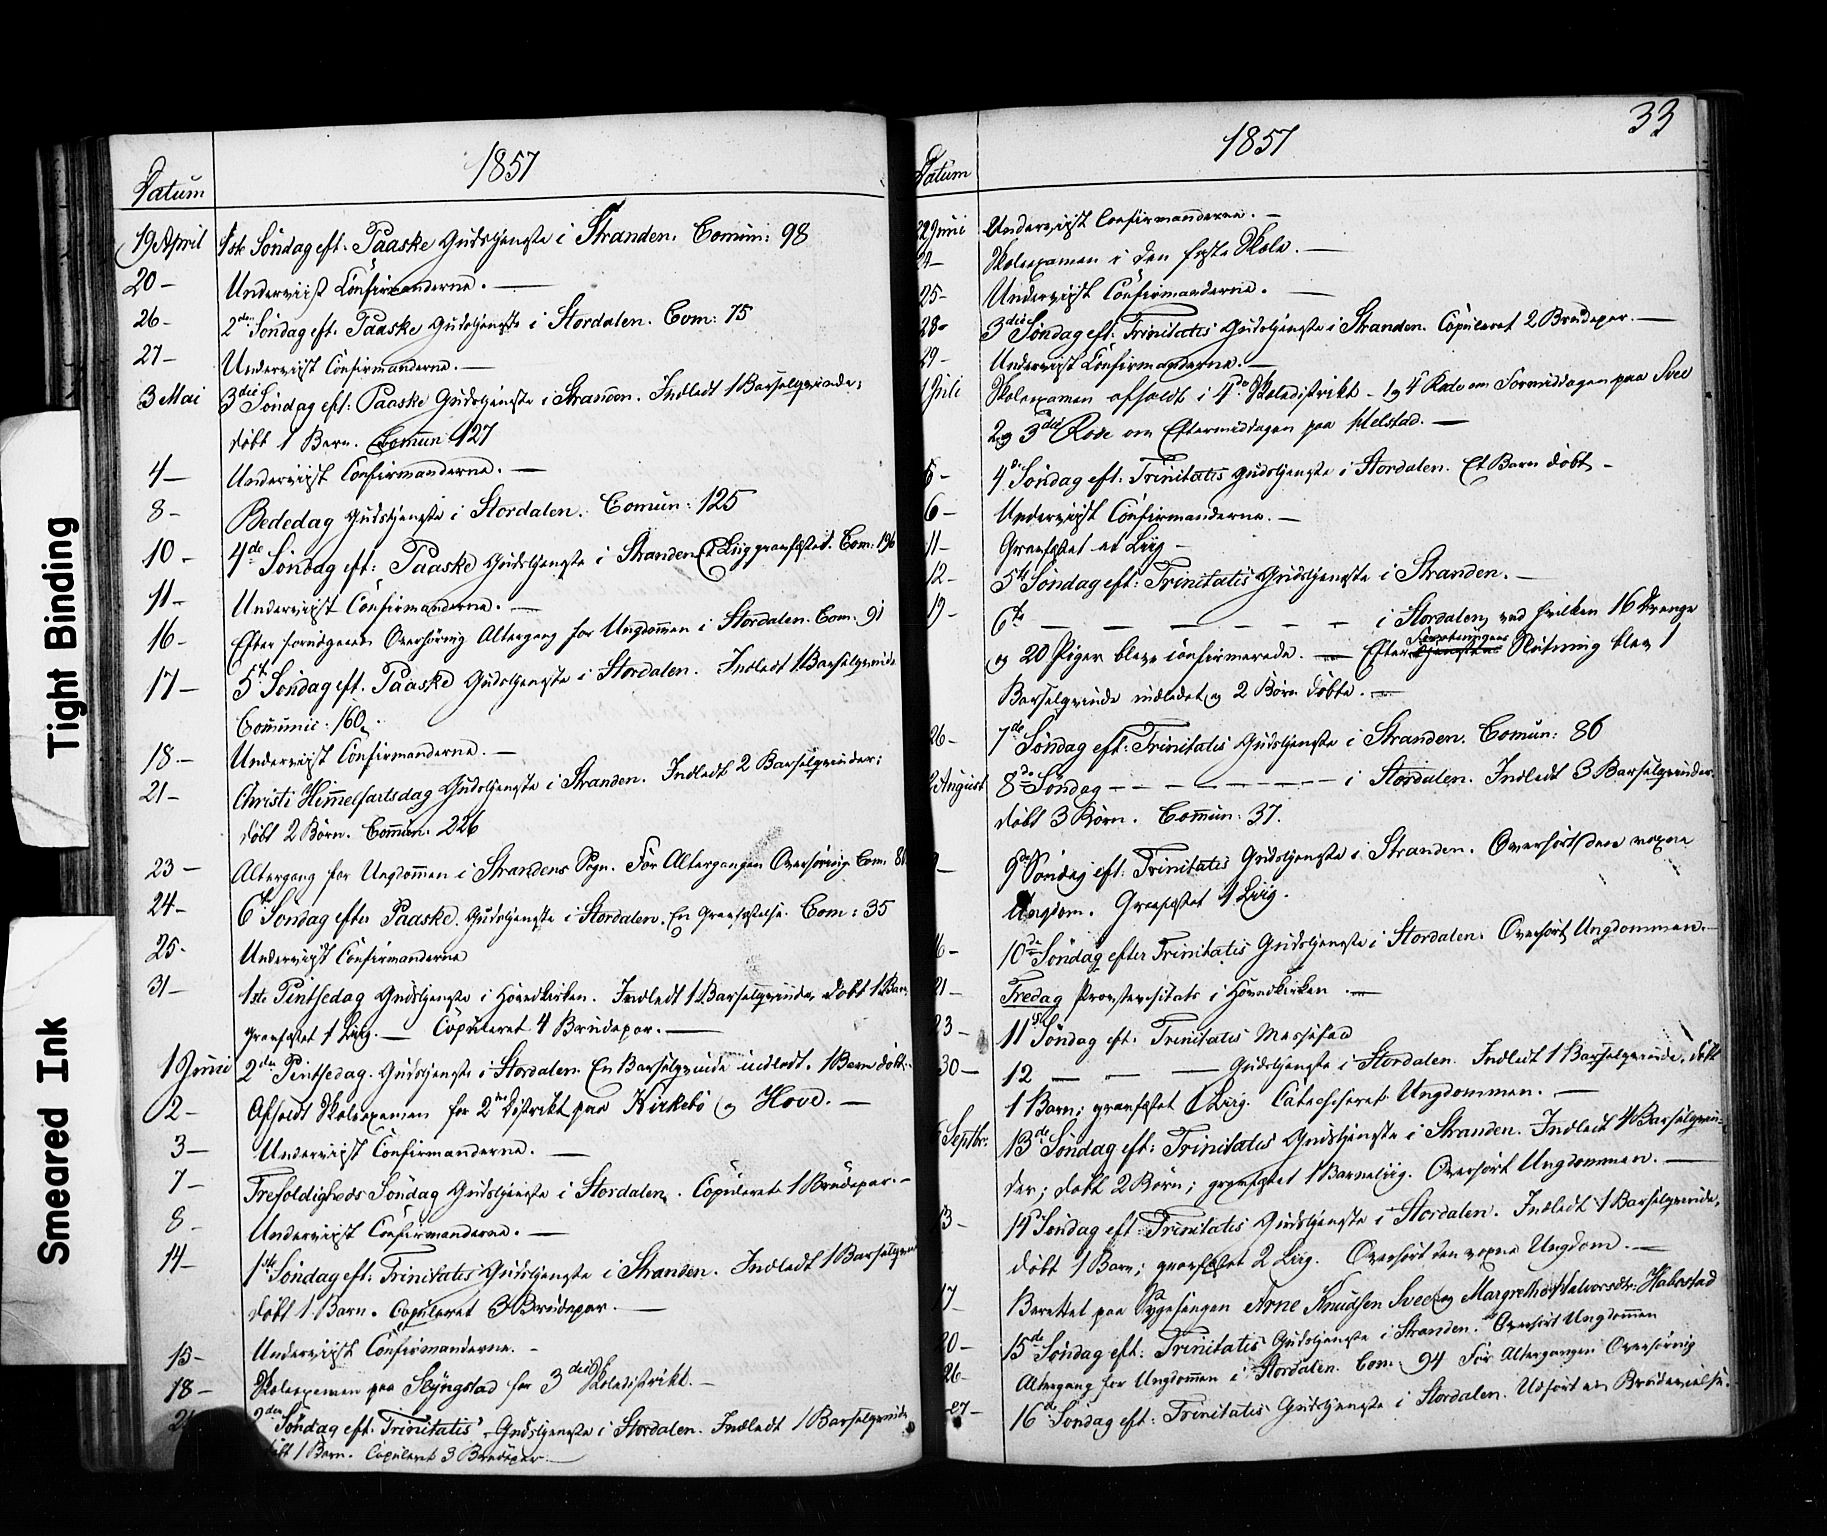 1857
Datum
19 April 1ste Söndag eft. Paaske Gudstjeneste i Stranden. Comūn: 98
20 – Underviist Confirmanderne. —
26 – 2den Söndag eft. Paaske Gudstjeneste i Stordalen. Com: 75
27 – Underviist Confirmanderne. —
3 Mai 3die Söndag eft: Paaske Gudstjeneste i Stranden. Indledt 1 Barselqvinde;
döbt 1 Barn. Com̄un 127
4 – Underviist Confirmanderne. —
8 – Bededag Gudstjeneste i Stordalen. Comūn: 125
10 – 4de Söndag eft: Paaske Gudstjeneste i Stranden Et Liig græsfæstet. Com: 196
11 – Underviist Confirmanderne. —
16 – Efter forudgaaen Overhöring Altergang for Ungdom̄en i Stordalen. Com. 91
17 – 5te Söndag eft. Paaske Gudstjeneste i Stordalen. Indledt 1 Barselqvinde
Com̄unic. 160.
18 – Underviist Confirmanderne. —
21 – Christi Him̄elfartsdag Gudstjeneste i Stranden. Indledt 2 Barselqvinder;
döbt 2 Börn. Com̄un. 226
23 – Altergang for Ungdom̄en i Strandens Sogn. För Altergangen Overhöring. Com
24 – 6te Söndag efter Paaske. Gudstjeneste i Stordalen. En Græsfæstelse. Com: 35
25 – Underviist Confirmanderne
31 – 1ste Pintsedag Gudstjeneste i Hovedkirken. Indledt 1 Barselqvinde, döbt 1 Barn,
græsfæstet 1 Liig. — Copuleret 4 Brudepar. —
1 Juni 2den Pintsedag. Gudstjeneste i Stordalen. En Barselqvinde indledt. 1 Barn döbt.
2 – Afholdt Skoleexamen for 2det Distrikt paa Kirkebö og Hove. —
3 – Underviist Confirmanderne. —
7 – Trefoldigheds Söndag Gudstjeneste i Stordalen. Copuleret 1 Brudepar. –
8 – Underviist Confirmanderne. —
14 – 1ste Söndag eft: Trinitatis Gudstjeneste i Stranden. Indledt 1 Barselqvin
döbt 1 Barn. Copuleret 3 Brudepar. —
15 – Underviist Confirmanderne. –
18 – Skoleexamen paa Slyngstad for 3die Skoledistrikt. –
2den Söndag eft: Trinitatis Gudstjeneste i Stordalen. Indledt 1 Barselqvinde
döbt 1 Barn. Copuleret 3 Brudepar —
33
1857
Datum
22 Juni Underviist Confirmanderne. –
24 – Skoleexamen i den faste Skole. —
25 – Underviist Confirmanderne. —
28 – 3die Söndag eft: Trinitatis Gudstjeneste i Stranden. Copuleret 2 Brudepar. —
29 – Underviist Confirmanderne. —
1 Juli Skoleexamen afholdt i 4de Skoledistrikt – 1 og 4 Rode om Formiddagen paa Svee
2 og 3die Rode om Eftermiddagen paa Melstad. —
5 – 4de Söndag eft: Trinitatis Gudstjeneste i Stordalen. Et Barn döbt –
6 – Underviist Confirmanderne. —
11 – Græsfæstet et Liig –
12 – 5te Söndag eft: Trinitatis Gudstjeneste i Stranden. –
19 – 6te — — — — — — i Stordalen, ved hvilken 16 Drenge
og 20 Piger bleve confirmerede. — Efter Tjenestens Slutning blev 1
Barselqvinde indledet og 2 Börn döbte. —
26 – 7de Söndag eft: Trinitatis Gudstjeneste i Stranden. Comūn: 86
2 August 8de Söndag — — — — — — i Stordalen. Indledt 3 Barselqvinder
döbt 3 Börn. Com̄un: 37.
9 – 9de Söndag eft: Trinitatis Gudstjeneste i Stranden. Overhört den voxne
Ungdom. Græsfæstet 1 Liig.
16 – 10de Söndag efter Trinitatis Gudstjeneste i Stordalen. Overhört Ungdommen. –
21 – Fredag Provstevisitats i Hovedkirken. —
23 – 11te Söndag eft. Trinitatis Messefald
30 – 12 — — — Gudstjeneste i Stordalen. Indledt 1 Barselqvinde, döbt
1 Barn; græsfæstet 1 Liig. Catechiseret Ungdommen. —
6 Septbr. 13de Söndag eft: Trinitatis Gudstjeneste i Stranden. Indledt 4 Barselqvin-
der; döbt 2 Börn; græsfæstet 1 Barneliig. Overhört Ungdommen. —
13 – 14de Söndag eft: Trinitatis Gudstjeneste i Stordalen. Indledt 1 Barselqvinde,
döbt 1 Barn; græsfæstet 2 Liig. Overhört den voxne Ungdom. —
17 – Berettet paa Sygesengen Arne Knudsen Svee og Margrethe Halvorsdtr. Habostad
20 – 15de Söndag eft: Trinitatis Gudstjeneste i Stranden. Overhört Ungdom̄en
26 – Altergang for Ungdom̄en i Stordalen. Com. 94 För Altergangen Overhöring
27 – 16de Söndag eft: Trinitatis Gudstjeneste i Stordalen. Udfört en Brudevielse.
Tight Binding
Smeared Ink